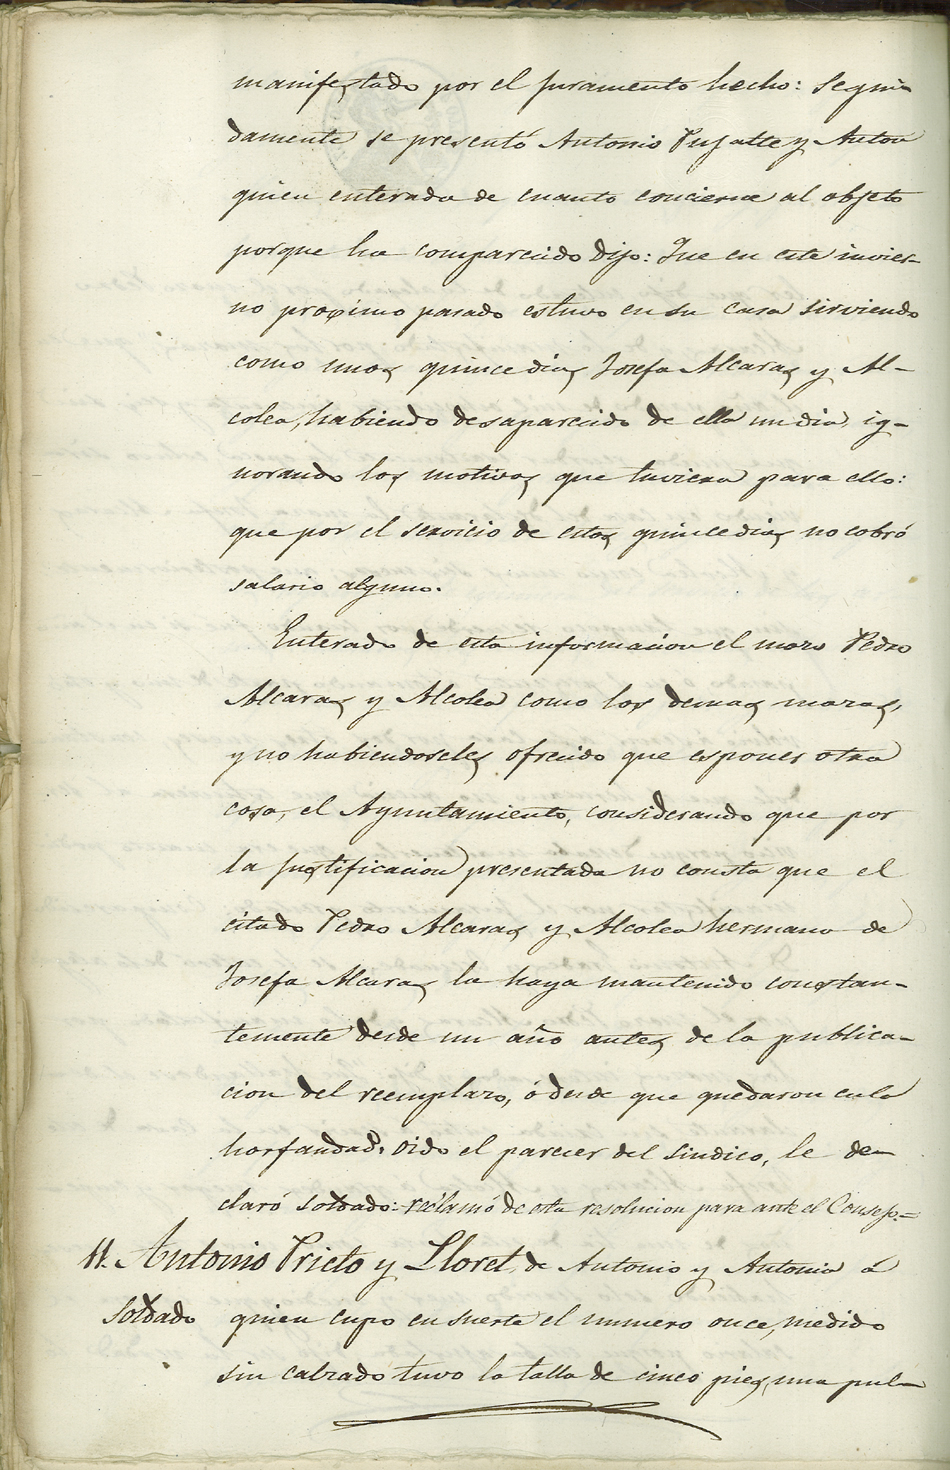 manifestado por el juramento hecho: Segui-
damente se presentó Antonio Pujalte y Anton
quien enterado de cuanto concierne al objeto
porque ha comparecido dijo: Que en este invier-
no procsimo pasado estuvo en su casa sirviendo
como unos quince dias Josefa Alcaras y Al-
colea, habiendo desaparecido de ella un dia, ig-
norando los motivos que tuviera para ello:
que por el servicio de estos quince dias no cobró
salario alguno.
Enterado de esta informacion el mozo Pedro
Alcaras y Alcolea como los demas mozos,
y no habiendoseles ofrecido que esponer otra
cosa, el Ayuntamiento, considerando que por
la justificacion presentada no consta que el
citado Pedro Alcaras y Alcolea hermano de
Josefa Alcaras la haya mantenido constan-
temente desde un año antes de la publica-
cion del reemplazo, ó desde que quedaron en la
horfandad. Oido el parecer del Sindico, le de-
claró soldado: reclamó de esta resolucion para ante el Consejo.=
11. Antonio Prieto y Lloret, de Antonio y Antonia á
Soldado quien cupo en suerte el numero once, medido
sin calzado tuvo la talla de cinco pies, una pul-